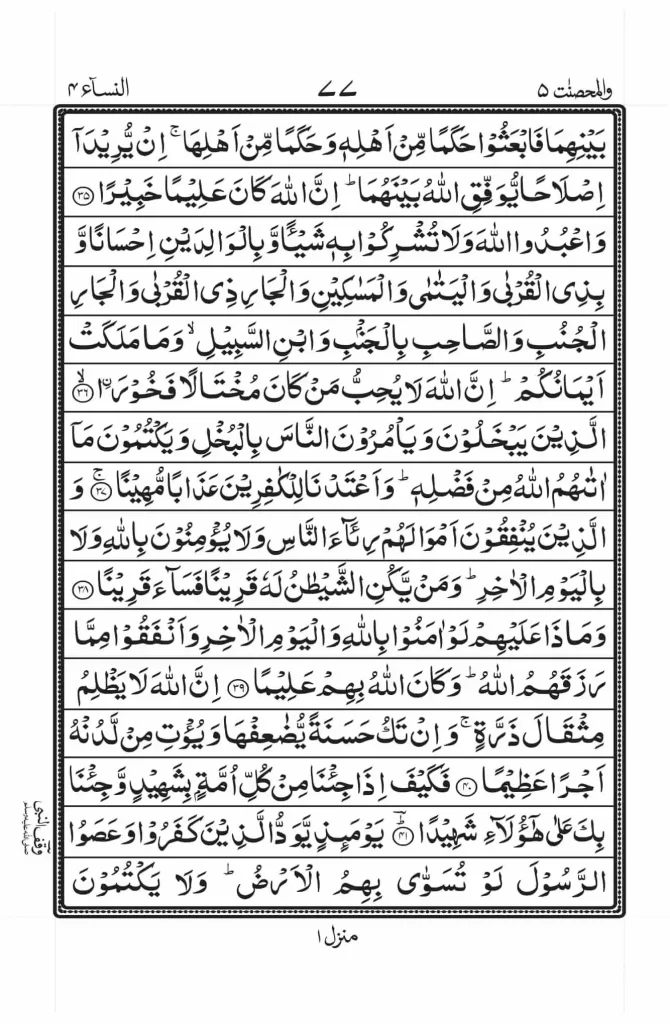 والمحصنٰت ۵ ۷۷ النسآء ۴
بَیۡنِہِمَا فَابۡعَثُوۡا حَکَمًا مِّنۡ اَہۡلِہٖ وَحَکَمًا مِّنۡ اَہۡلِہَا ۚ اِنۡ یُّرِیۡدَاۤ
اِصۡلَاحًا یُّوَفِّقِ اللّٰہُ بَیۡنَہُمَا ؕ اِنَّ اللّٰہَ کَانَ عَلِیۡمًا خَبِیۡرًا ﴿۳۵﴾
وَاعۡبُدُوا اللّٰہَ وَلَا تُشۡرِکُوۡا بِہٖ شَیۡـًٔا وَّ بِالۡوَالِدَیۡنِ اِحۡسَانًا وَّ
بِذِی الۡقُرۡبٰی وَالۡیَتٰمٰی وَالۡمَسٰکِیۡنِ وَالۡجَارِ ذِی الۡقُرۡبٰی وَالۡجَارِ
الۡجُنُبِ وَالصَّاحِبِ بِالۡجَنۡۢبِ وَابۡنِ السَّبِیۡلِ ۙ وَمَا مَلَکَتۡ
اَیۡمَانُکُمۡ ؕ اِنَّ اللّٰہَ لَا یُحِبُّ مَنۡ کَانَ مُخۡتَالًا فَخُوۡرَاۨ ﴿ۙ۳۶﴾
الَّذِیۡنَ یَبۡخَلُوۡنَ وَیَاۡمُرُوۡنَ النَّاسَ بِالۡبُخۡلِ وَیَکۡتُمُوۡنَ مَاۤ
اٰتٰہُمُ اللّٰہُ مِنۡ فَضۡلِہٖ ؕ وَاَعۡتَدۡنَا لِلۡکٰفِرِیۡنَ عَذَابًا مُّہِیۡنًا ﴿ۚ۳۷﴾ وَ
الَّذِیۡنَ یُنۡفِقُوۡنَ اَمۡوَالَہُمۡ رِئَآءَ النَّاسِ وَلَا یُؤۡمِنُوۡنَ بِاللّٰہِ وَلَا
بِالۡیَوۡمِ الۡاٰخِرِ ؕ وَمَنۡ یَّکُنِ الشَّیۡطٰنُ لَہٗ قَرِیۡنًا فَسَآءَ قَرِیۡنًا ﴿۳۸﴾
وَمَاذَا عَلَیۡہِمۡ لَوۡ اٰمَنُوۡا بِاللّٰہِ وَالۡیَوۡمِ الۡاٰخِرِ وَاَنۡفَقُوۡا مِمَّا
رَزَقَہُمُ اللّٰہُ ؕ وَکَانَ اللّٰہُ بِہِمۡ عَلِیۡمًا ﴿۳۹﴾ اِنَّ اللّٰہَ لَا یَظۡلِمُ
مِثۡقَالَ ذَرَّۃٍ ۚ وَاِنۡ تَکُ حَسَنَۃً یُّضٰعِفۡہَا وَیُؤۡتِ مِنۡ لَّدُنۡہُ
اَجۡرًا عَظِیۡمًا ﴿۴۰﴾ فَکَیۡفَ اِذَا جِئۡنَا مِنۡ کُلِّ اُمَّۃٍۭ بِشَہِیۡدٍ وَّجِئۡنَا
بِکَ عَلٰی ہٰۤؤُلَآءِ شَہِیۡدًا ﴿ؕ۴۱﴾ یَوۡمَئِذٍ یَّوَدُّ الَّذِیۡنَ کَفَرُوۡا وَعَصَوُا
الرَّسُوۡلَ لَوۡ تُسَوّٰی بِہِمُ الۡاَرۡضُ ؕ وَلَا یَکۡتُمُوۡنَ
وقف النبی صلی اللہ علیہ وسلم
منزل ۱